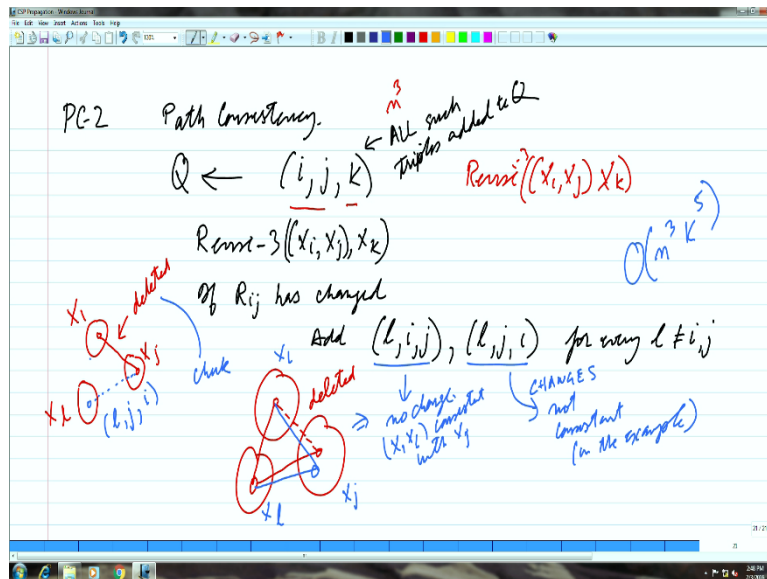 CSP Propagation - Windows Journal
File Edit View Insert Actions Tools Help
100%
B I
PC-2 Path Consistency.
n³
← ALL such
triples added to Q
Q ← (i, j, k)
Revise-3((Xi, Xj) Xk)
Revise-3((Xi, Xj), Xk)
O(n³ k⁵)
If Rij has changed
Add (l, i, j), (l, j, i) for every l ≠ i, j
Xi
deleted
Xj
Xl
(l, j, i)
check
Xi
deleted
Xl
Xj
⇒ no change.
(Xi Xl) consistent
with Xj
CHANGES
not
consistent
(in the example)
21 / 21
21
2:48 PM
2/3/2018